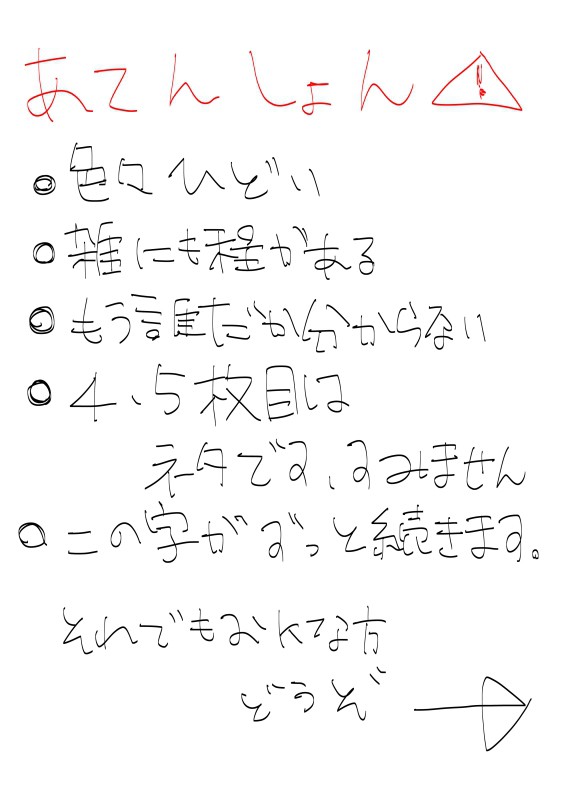 あてんしょん⚠
●色々ひどい
●雑にも程がある
●もう誰だか分からない
●4、5枚目は
ネタです、すみません
●この字がずっと続きます。
それでもおKな方
どうぞ→